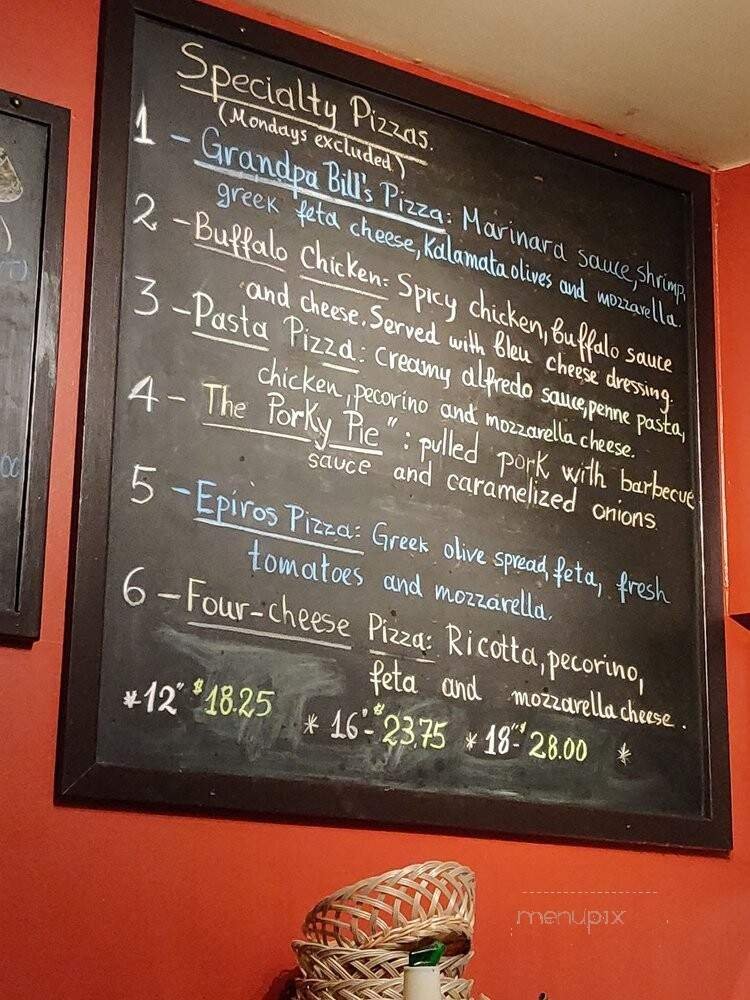 Specialty Pizzas.
(Mondays excluded)
1 - Grandpa Bill's Pizza: Marinara sauce, shrimp,
greek feta cheese, Kalamata olives and mozzarella.
2 - Buffalo Chicken: Spicy chicken, buffalo sauce
and cheese. Served with bleu cheese dressing.
3 - Pasta Pizza: creamy alfredo sauce, penne pasta,
chicken, pecorino and mozzarella cheese.
4 - The Porky Pie": pulled pork with barbecue
sauce and caramelized onions
5 - Epiros Pizza: Greek olive spread, feta, fresh
tomatoes and mozzarella.
6 - Four-cheese Pizza: Ricotta, pecorino,
feta and mozzarella cheese.
*12" $18.25 * 16"- $23.75 * 18"- $28.00 *
menupix